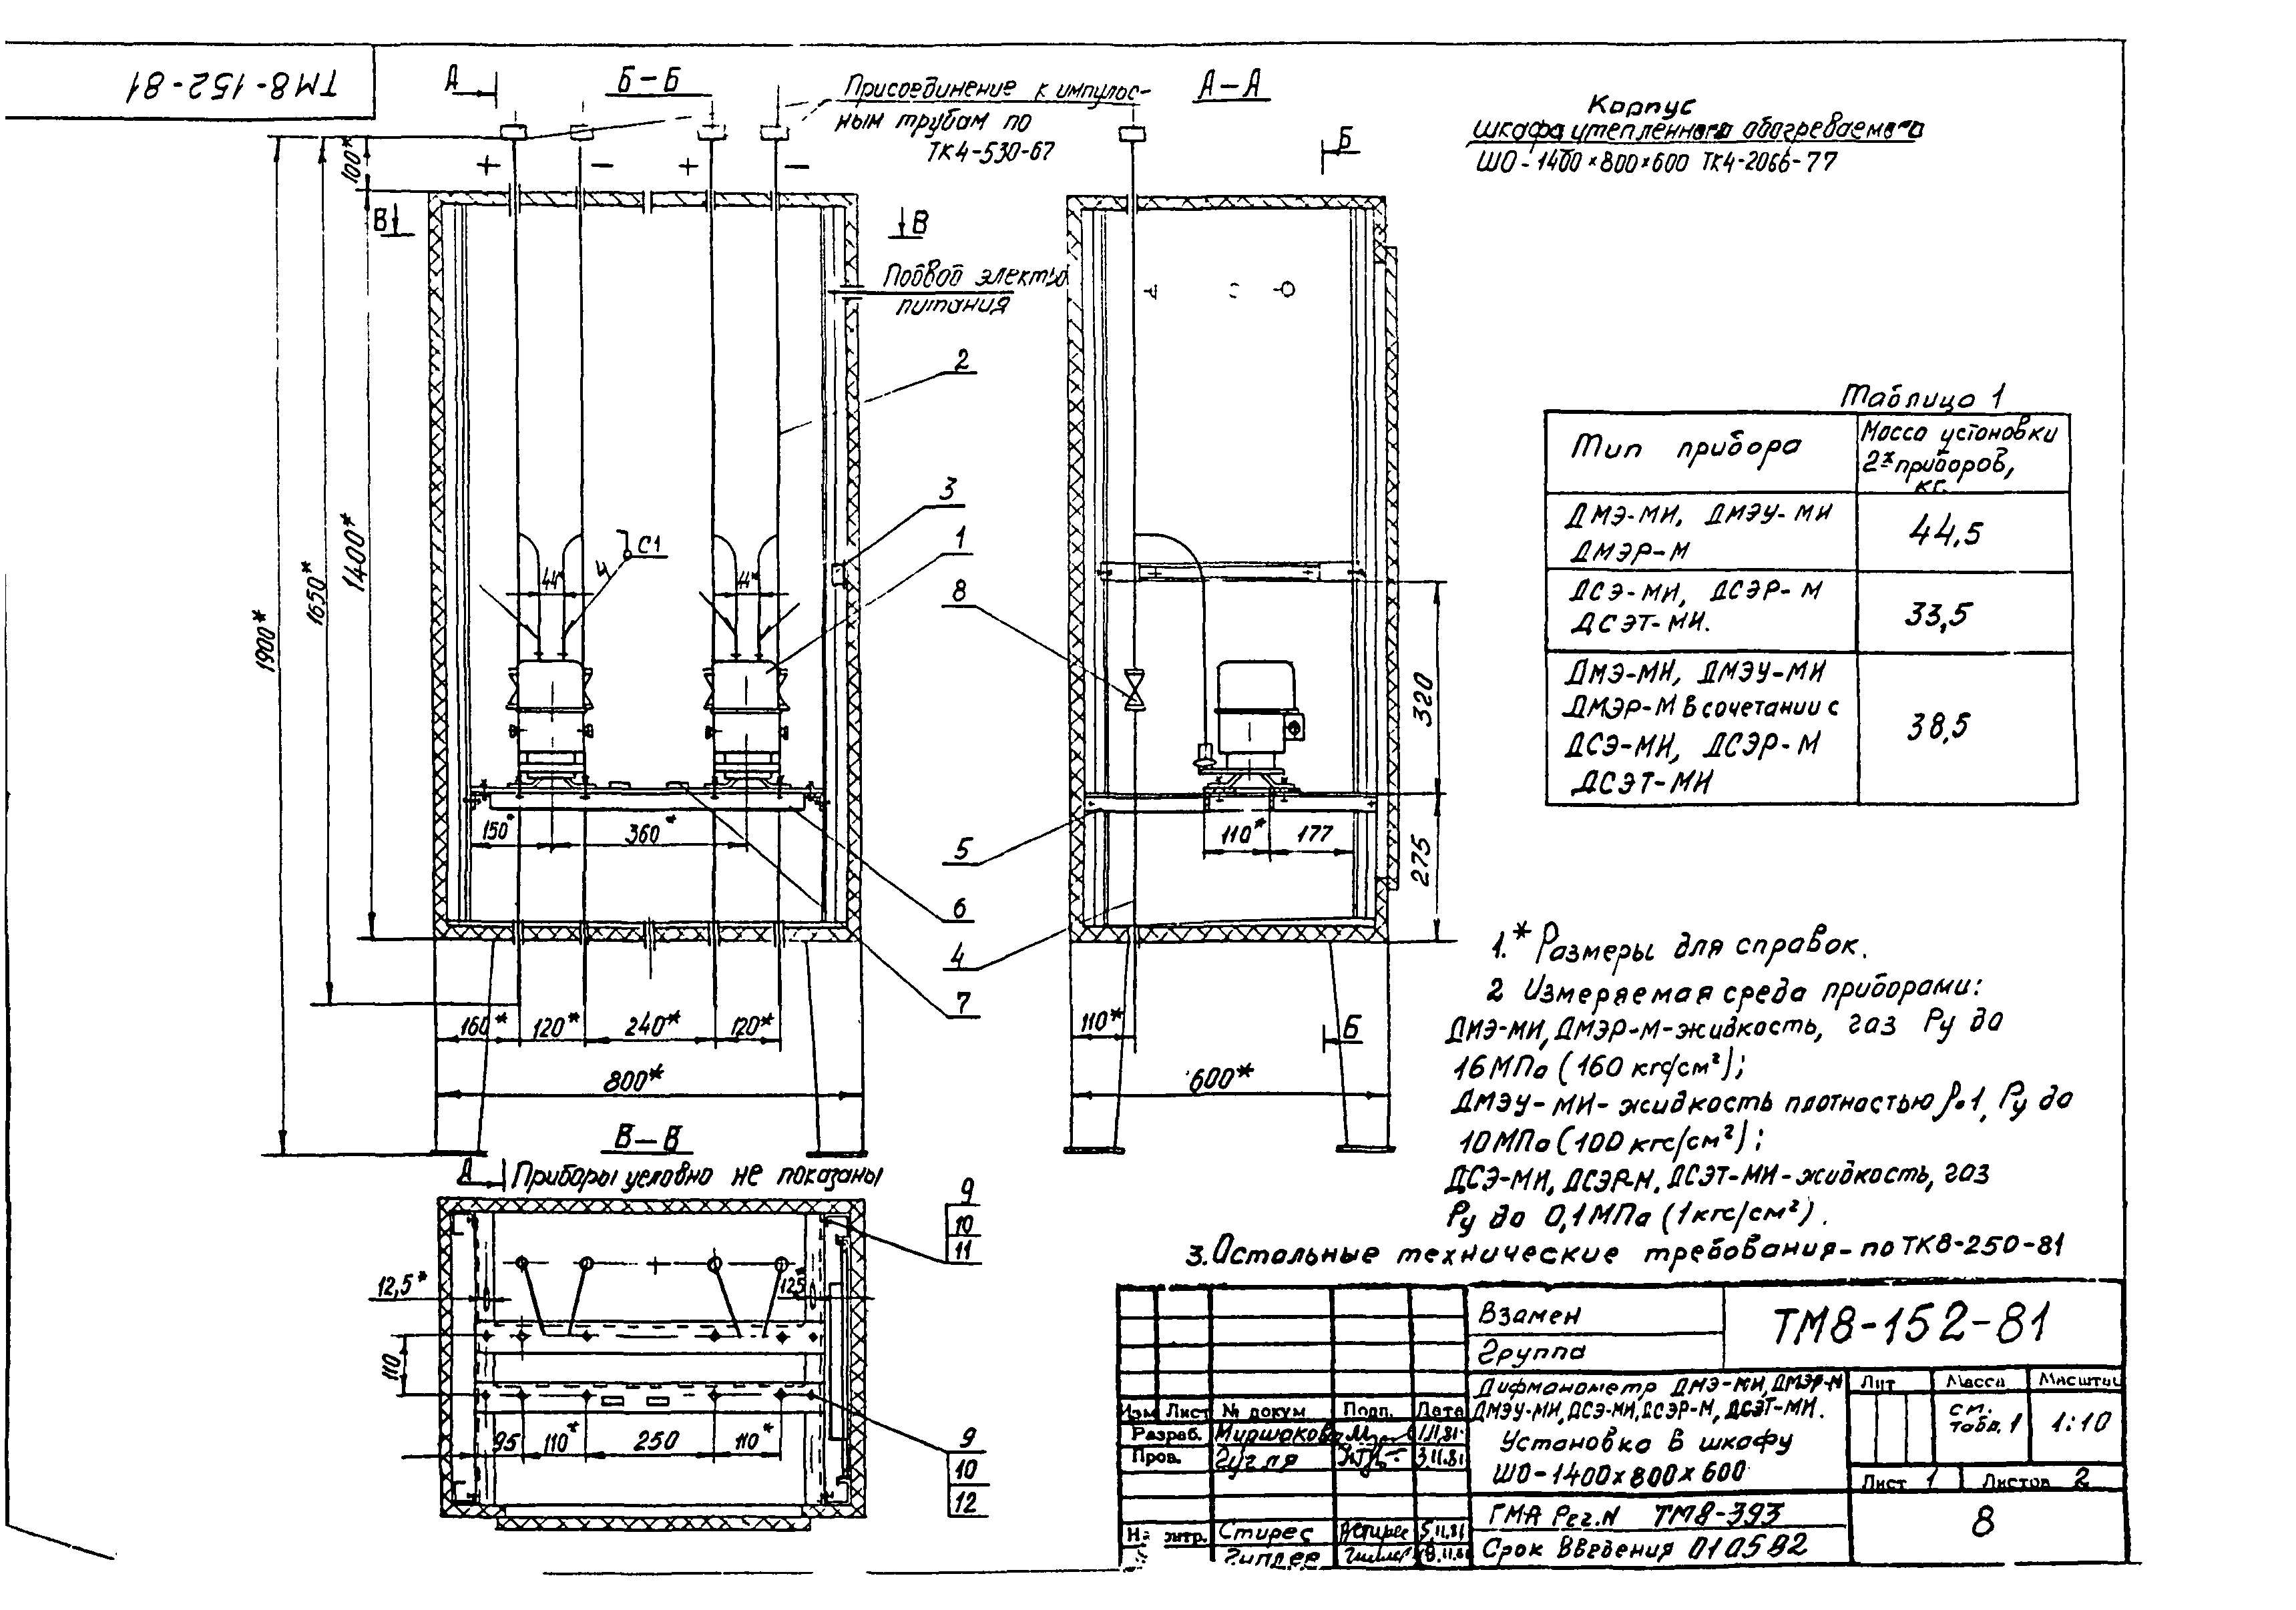 ТМ8-152-81
А
Б-Б
Присоединение к импульс-
ным трубам по
ТК4-530-67
А-А
Б
Корпус
шкафа утепленного обогреваемого
ШО-1400×800×600 ТК4-2066-77
100*
+
-
+
-
В
В
Подвод электро
питания
1900*
1650*
1400*
2
3
1
8
С1
4
44*
44*
320
275
150*
360*
110*
177
5
6
4
7
160*
120*
240*
120*
110*
Б
800*
600*
Таблица 1
Тип прибора
Масса установки
2х приборов,
кг.
ДМЭ-МИ, ДМЭУ-МИ
ДМЭР-М
44,5
ДСЭ-МИ, ДСЭР-М
ДСЭТ-МИ.
33,5
ДМЭ-МИ, ДМЭУ-МИ
ДМЭР-М в сочетании с
ДСЭ-МИ, ДСЭР-М
ДСЭТ-МИ
38,5
1.* Размеры для справок.
2 Измеряемая среда приборами:
ДМЭ-МИ, ДМЭР-М-жидкость, газ Ру до
16 МПа (160 кгс/см²);
ДМЭУ-МИ-жидкость плотностью ρ=1, Ру до
10 МПа (100 кгс/см²);
ДСЭ-МИ, ДСЭР-М, ДСЭТ-МИ-жидкость, газ
Ру до 0,1 МПа (1 кгс/см²).
3. Остальные технические требования-по ТК8-250-81
В-В
А
Приборы условно не показаны
9
10
11
12,5*
12,5*
110
95
110*
250
110*
9
10
12
Взамен
Группа
ТМ8-152-81
Дифманометр ДМЭ-МИ, ДМЭР-М
ДМЭУ-МИ, ДСЭ-МИ, ДСЭР-М, ДСЭТ-МИ.
Установка в шкафу
ШО-1400×800×600
Лит
Масса
Масштаб
см.
табл. 1
1:10
Лист 1
Листов 2
Изм
Лист
№ докум
Подп.
Дата
Разраб.
Миршакова
Пров.
Гугля
3.11.81
Стирес
5.11.81
ГМА Рег.N ТМ8-393
Срок введения 010582
8